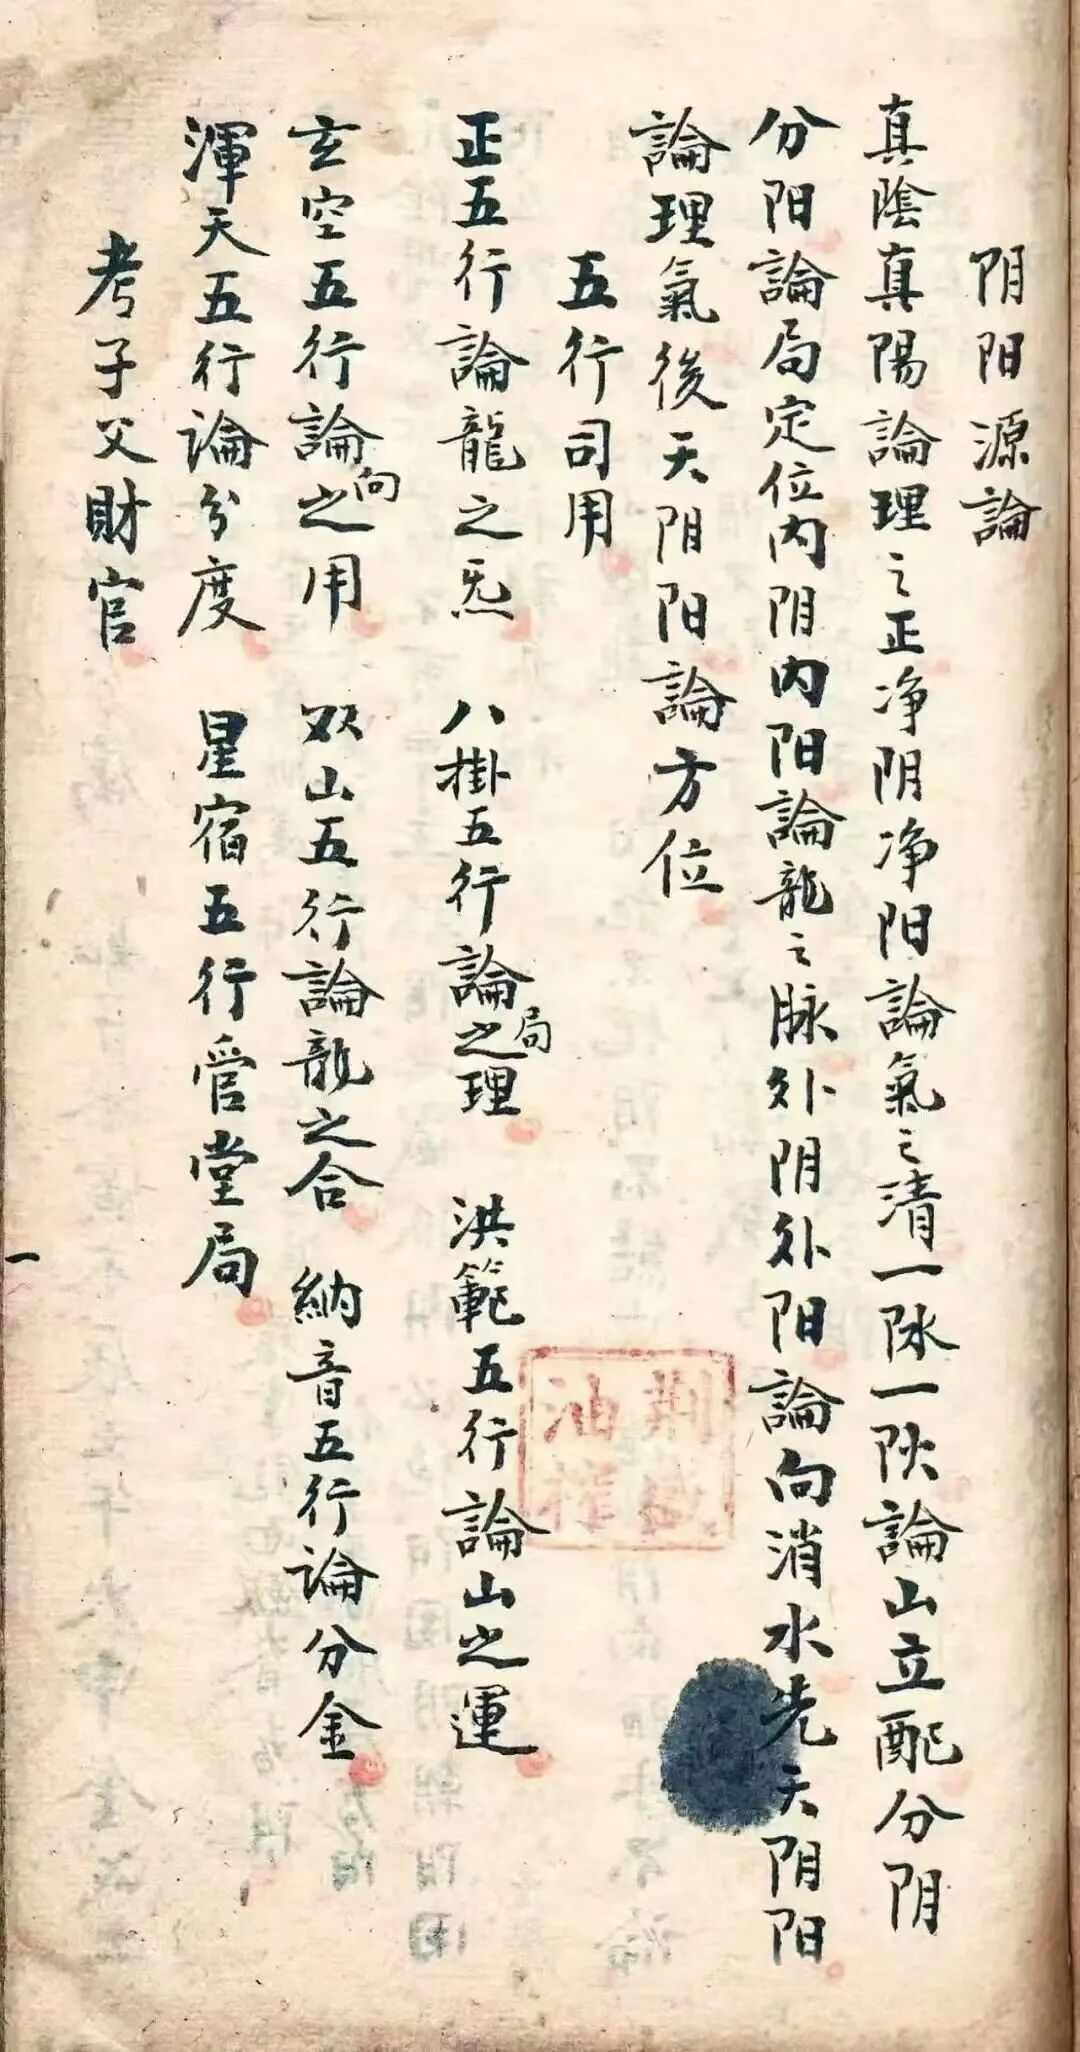 阴阳源論
真陰真陽論理之正净阴净阳論氣之清一阥一阦論山立配分阴
分阳論局定位内阴内阳論龍之脉外阴外阳論向消水先天阴阳
論理氣後天阴阳論方位
五行司用
正五行論龍之炁 八掛五行論局之理 洪範五行論山之運
玄空五行論向之用 双山五行論龍之合 納音五行論分金
渾天五行論分度 星宿五行管堂局
考子父財官
一